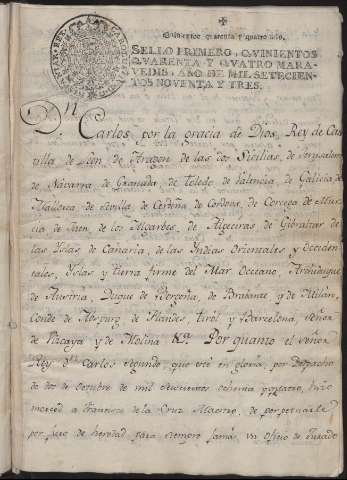 Quinientos quarenta y quatro mrs.
SELLO PRIMERO, QVINIENTOS
QVARENTA Y QVATRO MARA-
VEDIS, AÑO DE MIL SETECIEN-
TOS NOVENTA Y TRES.
Dn. Carlos por la gracia de Dios, Rey de Cas-
tilla de Leon, de Aragon de las dos Sicilias, de Jerusalem
de Navarra de Granada, de Toledo de Valencia, de Galicia de
Mallorca de Sevilla de Cerdeña de Cordova, de Corcega de Mur-
cia de Jaen, de los Algarbes, de Algeciras de Gibraltar de
las Yslas de Canaria, de las Indias Orientales y Occiden-
tales, Yslas y tierra firme del Mar Occeano, Archiduque
de Austria, Duque de Borgoña, de Brabante y de Milan,
Conde de Abspurg de Flandes, tirol y Barcelona, Señor
de Vizcaya y de Molina &c. Por quanto el señor
Rey Dn. Carlos segundo, que esté en gloria, por Despacho
de dos de Octubre de mil seiscientos ochenta y quatro, hizo
merced a Francisco de la Cruz Alaorzo, de perpetuarle
por juro de heredad para siempre jamás, un Oficio de Jurado